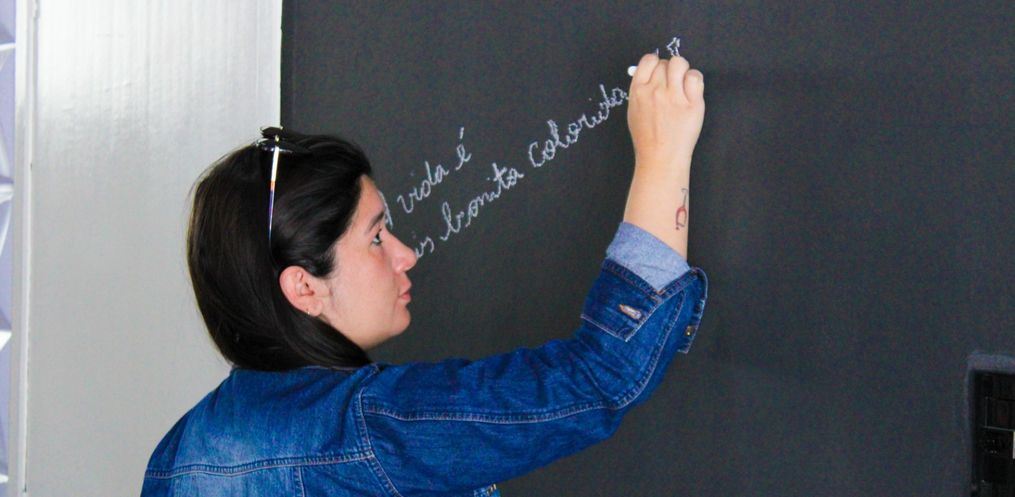 A vida é
mais bonita colorida